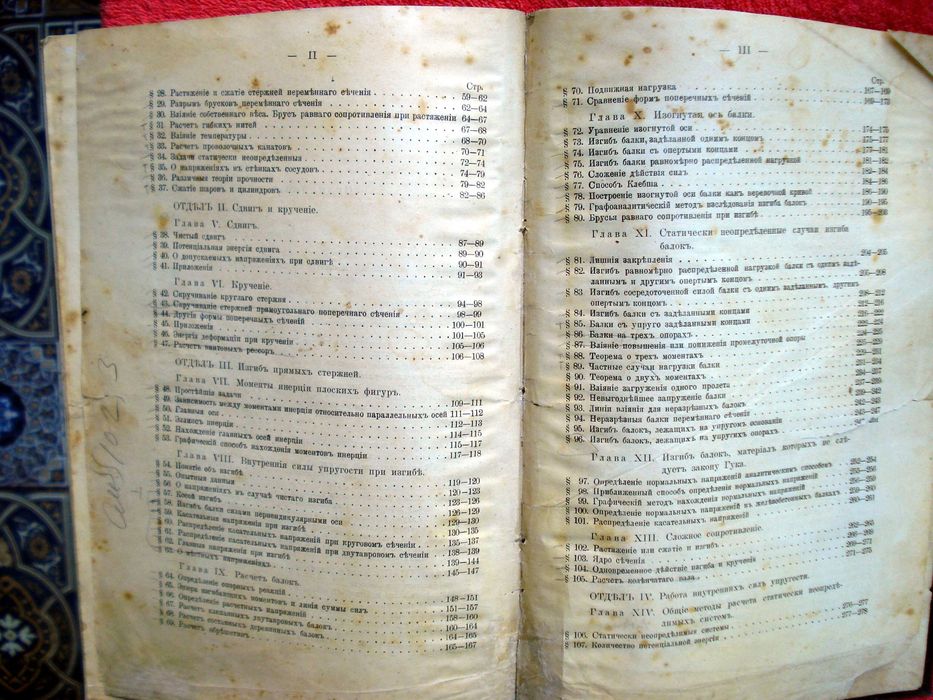 — II —
Стр.
§ 28. Растяженіе и сжатіе стержней перемѣннаго сѣченія 59—62
§ 29. Разрывъ брусковъ перемѣннаго сѣченія 62—64
§ 30. Вліяніе собственнаго вѣса. Брусъ равнаго сопротивленія при растяженіи 64—67
§ 31. Расчетъ гибкихъ нитей 67—68
§ 32. Вліяніе температуры 68—70
§ 33. Расчетъ проволочныхъ канатовъ 70—71
§ 34. Задачи статически неопредѣленныя 72—74
§ 35. О напряженіяхъ въ стѣнкахъ сосудовъ 74—79
§ 36. Различныя теоріи прочности 79—82
§ 37. Сжатіе шаровъ и цилиндровъ 82—86
ОТДѢЛЪ II. Сдвигъ и крученіе.
Глава V. Сдвигъ.
§ 38. Чистый сдвигъ 87—89
§ 39. Потенціальная энергія сдвига 89—90
§ 40. О допускаемыхъ напряженіяхъ при сдвигѣ 90—91
§ 41. Приложенія 91—93
Глава VI. Крученіе.
§ 42. Скручиваніе круглаго стержня 94—98
§ 43. Скручиваніе стержня прямоугольнаго поперечнаго сѣченія 98—99
§ 44. Другія формы поперечныхъ сѣченій 100—101
§ 45. Приложенія 101—105
§ 46. Энергія деформаціи при крученіи 105—106
§ 47. Расчетъ винтовыхъ рессоръ 106—108
ОТДѢЛЪ III. Изгибъ прямыхъ стержней.
Глава VII. Моменты инерціи плоскихъ фигуръ.
§ 48. Простѣйшія задачи 109—111
§ 49. Зависимость между моментами инерціи относительно параллельныхъ осей 111—112
§ 50. Главныя оси 112—113
§ 51. Эллипсъ инерціи 114—115
§ 52. Нахожденіе главныхъ осей инерціи 115—117
§ 53. Графическій способъ нахожденія моментовъ инерціи 117—118
Глава VIII. Внутреннія силы упругости при изгибѣ.
§ 54. Понятіе объ изгибѣ 119—120
§ 55. Опытныя данныя 120—123
§ 56. О напряженіяхъ въ случаѣ чистаго изгиба 123—126
§ 57. Косой изгибъ 126—129
§ 58. Изгибъ балки силами перпендикулярными оси 129—130
§ 59. Касательныя напряженія при изгибѣ 130—135
§ 60. Распредѣленіе касательныхъ напряженій при круговомъ сѣченіи 135—137
§ 61. Распредѣленіе касательныхъ напряженій при двутавровомъ сѣченіи 138—139
§ 62. Главныя напряженія при изгибѣ 139—144
§ 63. О мѣстныхъ напряженіяхъ 145—147
Глава IX. Расчетъ балокъ.
§ 64. Опредѣленіе опорныхъ реакцій 148—151
§ 65. Эпюра изгибающихъ моментовъ и линія суммы силъ 151—157
§ 66. Опредѣленіе расчетныхъ напряженій 158—160
§ 67. Расчетъ клепанныхъ двутавровыхъ балокъ 160—164
§ 68. Расчетъ составныхъ деревянныхъ балокъ 164—165
§ 69. Расчетъ обрѣшетокъ 165—167
— III —
Стр.
§ 70. Подвижная нагрузка 167—169
§ 71. Сравненіе формъ поперечныхъ сѣченій 169—173
Глава X. Изогнутая ось балки.
§ 72. Уравненіе изогнутой оси 174—175
§ 73. Изгибъ балки, задѣланной однимъ концомъ 175—177
§ 74. Изгибъ балки съ опертыми концами 177—181
§ 75. Изгибъ балки равномѣрно распредѣленной нагрузкой 181—182
§ 76. Сложеніе дѣйствія силъ 182—184
§ 77. Способъ Клебша 184—186
§ 78. Построеніе изогнутой оси балки какъ веревочной кривой 186—190
§ 79. Графоаналитическій методъ изслѣдованія изгиба балокъ 190—195
§ 80. Брусья равнаго сопротивленія при изгибѣ 195—203
Глава XI. Статически неопредѣленные случаи изгиба
балокъ.
§ 81. Лишнія закрѣпленія 204—205
§ 82. Изгибъ равномѣрно распредѣленной нагрузкой балки съ однимъ задѣ-
ланнымъ и другимъ опертымъ концомъ 205—208
§ 83 Изгибъ сосредоточенной силой балки съ однимъ задѣланнымъ, другимъ
опертымъ концомъ 208—212
§ 84. Изгибъ балки съ задѣланными концами 212—216
§ 85. Балки съ упруго задѣланными концами 216—222
§ 86. Балки на трехъ опорахъ 222—224
§ 87. Вліяніе повышенія или пониженія промежуточной опоры 224—225
§ 88. Теорема о трехъ моментахъ 225—229
§ 89. Частные случаи нагрузки балки 229—231
§ 90. Теорема о двухъ моментахъ 231—234
§ 91. Вліяніе загруженія одного пролета 234—237
§ 92. Невыгоднѣйшее загруженіе балки 237—239
§ 93. Линіи вліянія для неразрѣзныхъ балокъ 239—242
§ 94. Неразрѣзныя балки перемѣннаго сѣченія 242—243
§ 95. Изгибъ балокъ, лежащихъ на упругомъ основаніи 243—247
§ 96. Изгибъ балокъ, лежащихъ на упругихъ опорахъ
Глава XII. Изгибъ балокъ, матеріалъ которыхъ не слѣ-
дуетъ закону Гука.
§ 97. Опредѣленіе нормальныхъ напряженій аналитическимъ способомъ 252—254
§ 98. Приближенный способъ опредѣленія нормальныхъ напряженій 255—256
§ 99. Графическій методъ нахожденія нормальныхъ напряженій 256—259
§ 100. Опредѣленіе нормальныхъ напряженій въ желѣзобетонныхъ балкахъ 259—260
§ 101. Распредѣленіе касательныхъ напряженій 260—261
Глава XIII. Сложное сопротивленіе.
§ 102. Растяженіе или сжатіе и изгибъ 262—265
§ 103. Ядро сѣченія 266—269
§ 104. Одновременное дѣйствіе изгиба и крученія 269—271
§ 105. Расчетъ колѣнчатаго вала 271—275
ОТДѢЛЪ IV. Работа внутреннихъ силъ упругости.
Глава XIV. Общіе методы расчета статически неопредѣ-
лимыхъ системъ.
§ 106. Статически неопредѣлимыя системы 276—277
§ 107. Количество потенціальной энергіи 277—278